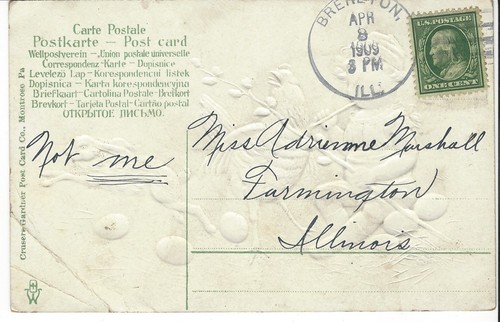 Carte Postale
Postkarte - Post card
Weltpostverein - Union postale universelle
Correspondenz-Karte - Dopisnice
Levelező Lap - Korespondencni listek
Dopisnica - Karta korespondencyjna
Briefkaart - Cartolina Postale - Brefkort
Brevkort - Tarjeta Postal - Cartão postal
ОТКРЫТОЕ ПИСЬМО.
BRERETON,
APR
8
1909
3 PM
ILL.
U.S. POSTAGE
ONE CENT
Crusere-Gardner Post Card Co., Montrose Pa
Not me
Miss Adrienne Marshall
Farmington
Illinois